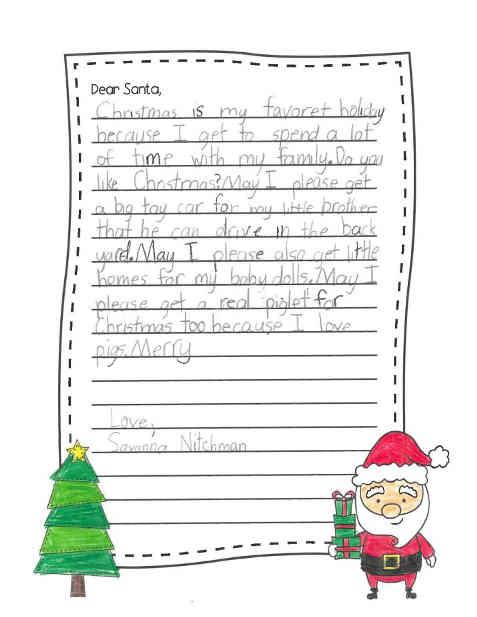 Dear Santa,
Christmas is my favoret holiday
because I get to spend a lot
of time with my family. Do you
like Christmas? May I please get
a big toy car for my little brother
that he can drive in the back
yard. May I please also get little
homes for my baby dolls. May I
please get a real piglet for
Christmas too because I love
pigs. Merry
Love,
Savanna Nitchman